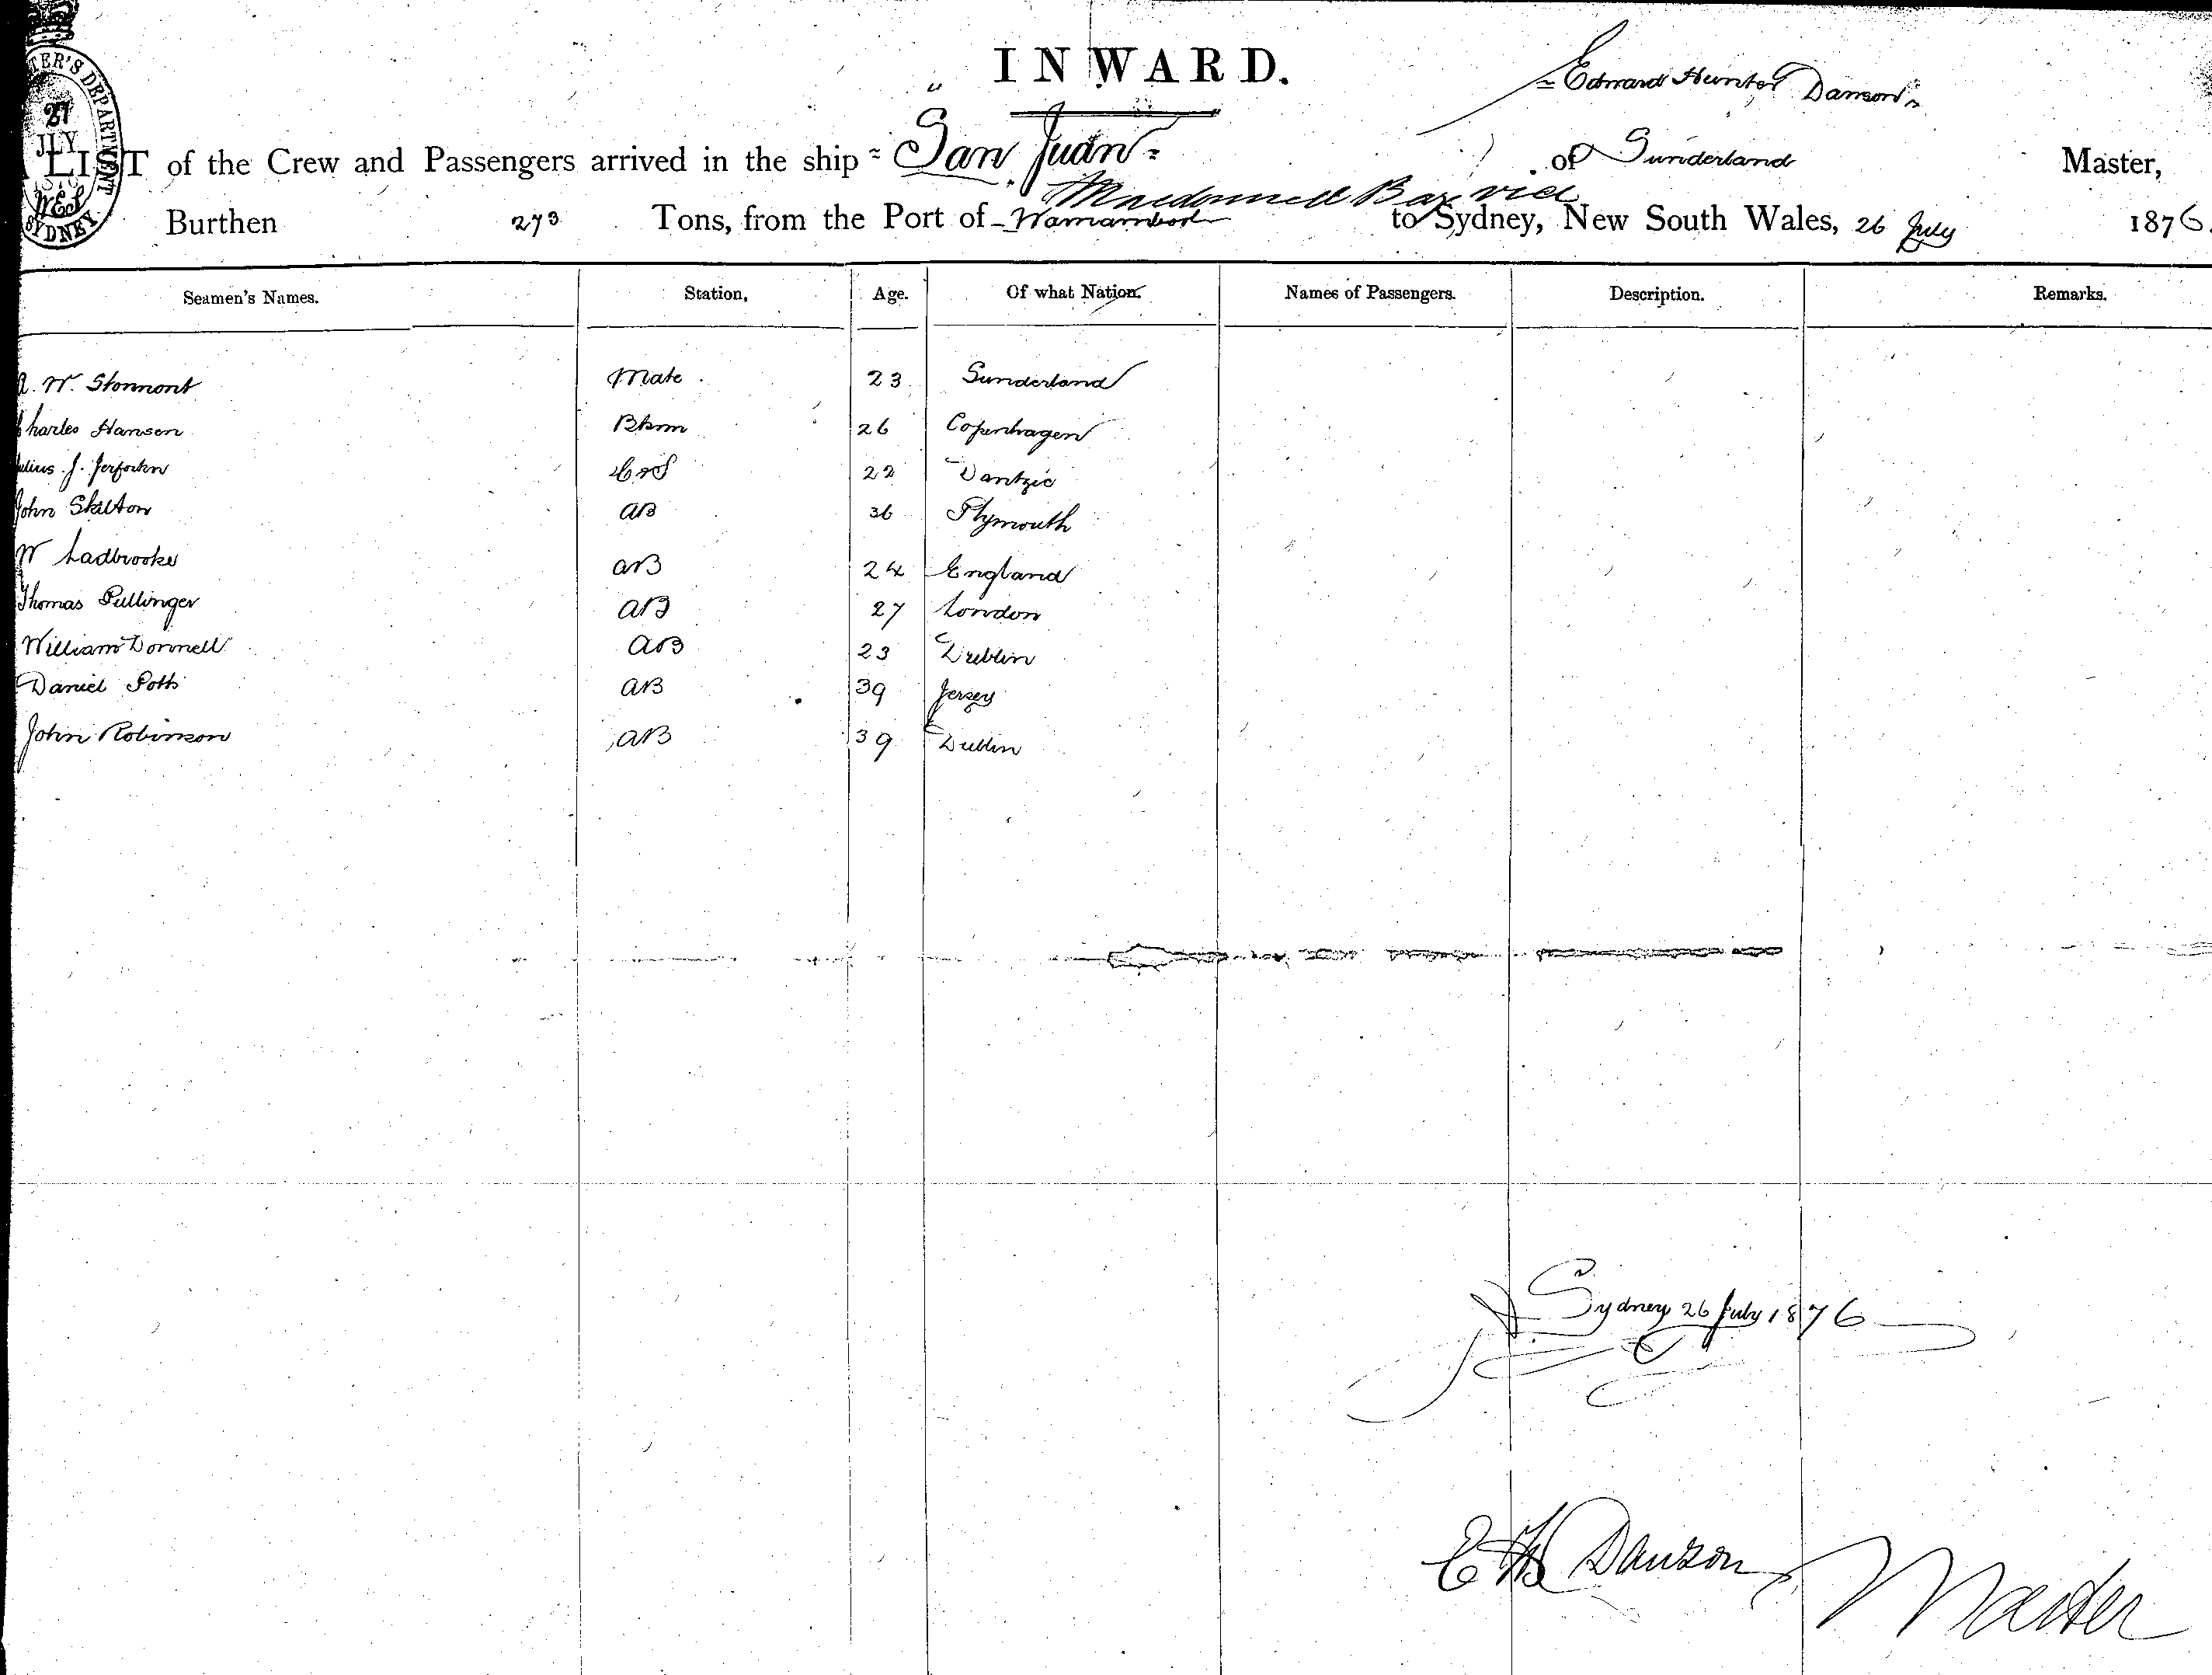 INWARD.
Edward Hunter Dawson
LIST of the Crew and Passengers arrived in the ship "San Juan" of Sunderland Master,
Macdonnell Bay
Burthen 273 Tons, from the Port of to Sydney, New South Wales, 26 July 1876.
27
JLY
SYDNEY
Seamen's Names. Station, Age. Of what Nation. Names of Passengers. Description. Remarks.
W. Stonmont Mate 23 Sunderland
Charles Hansen 26 Copenhagen
Julius J. 22 Dantzic
John Skelton AB 36 Plymouth
W Ladbrooke AB 24 England
Thomas Pullinger AB 27 London
William Donnell AB 23 Dublin
Daniel Potts AB 39 Jersey
John Robinson AB 39 Dublin
Sydney 26 July 1876
E H Dawson Master